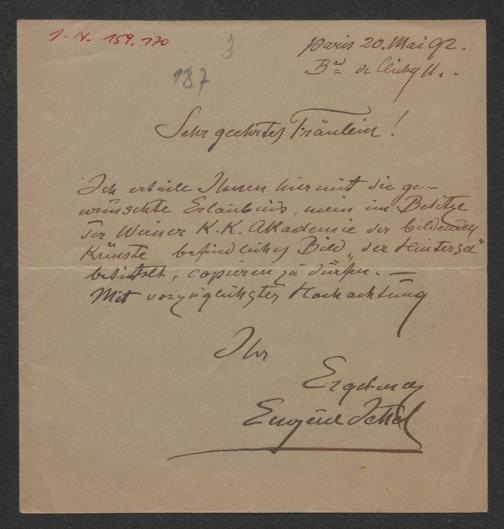 J. N. 159.170
3
187
Paris 20. Mai 92.
B^d de Clichy 11. -
Sehr geehrtes Fräulein!
Ich erteile Ihnen hiermit die ge-
wünschte Erlaubnis, mein im Besitze
der Wiener K. K. Akademie der bildenden
Künste befindliches Bild, "der Hintersee"
betitelt, copieren zu dürfen. —
Mit vorzüglichster Hochachtung
Ihr
Ergebener
Eugène Jettel